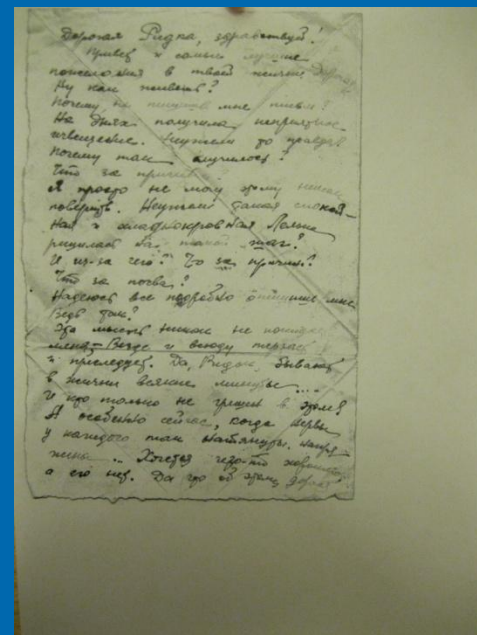 Дорогая Рида, здравствуй!
Привет и самые лучшие
пожелания в твоей жизни
Ну как живешь?
Почему не пишешь мне письма?
На днях получила неприятное
извещение. Неужели то правда
Почему так случилось?
Что за причина?
Я просто не могу этому никак
поверить. Неужели такая спокой-
ная и хладнокровная Лёлька
решилась на такой шаг?
И из-за чего? Что за причина?
Что за почва?
Надеюсь все подробно опишешь мне
Ведь так?
Эта мысль никак не
меня. Везде и всюду терзает
и преследует. Да, Рида, бывают
в жизни всякие минуты ....
И кто только не грешен в этом?
А особенно сейчас, когда нервы
у каждого так натянуты, напря-
жены ... Хочется чего-то
а его нет. Да что об этом,